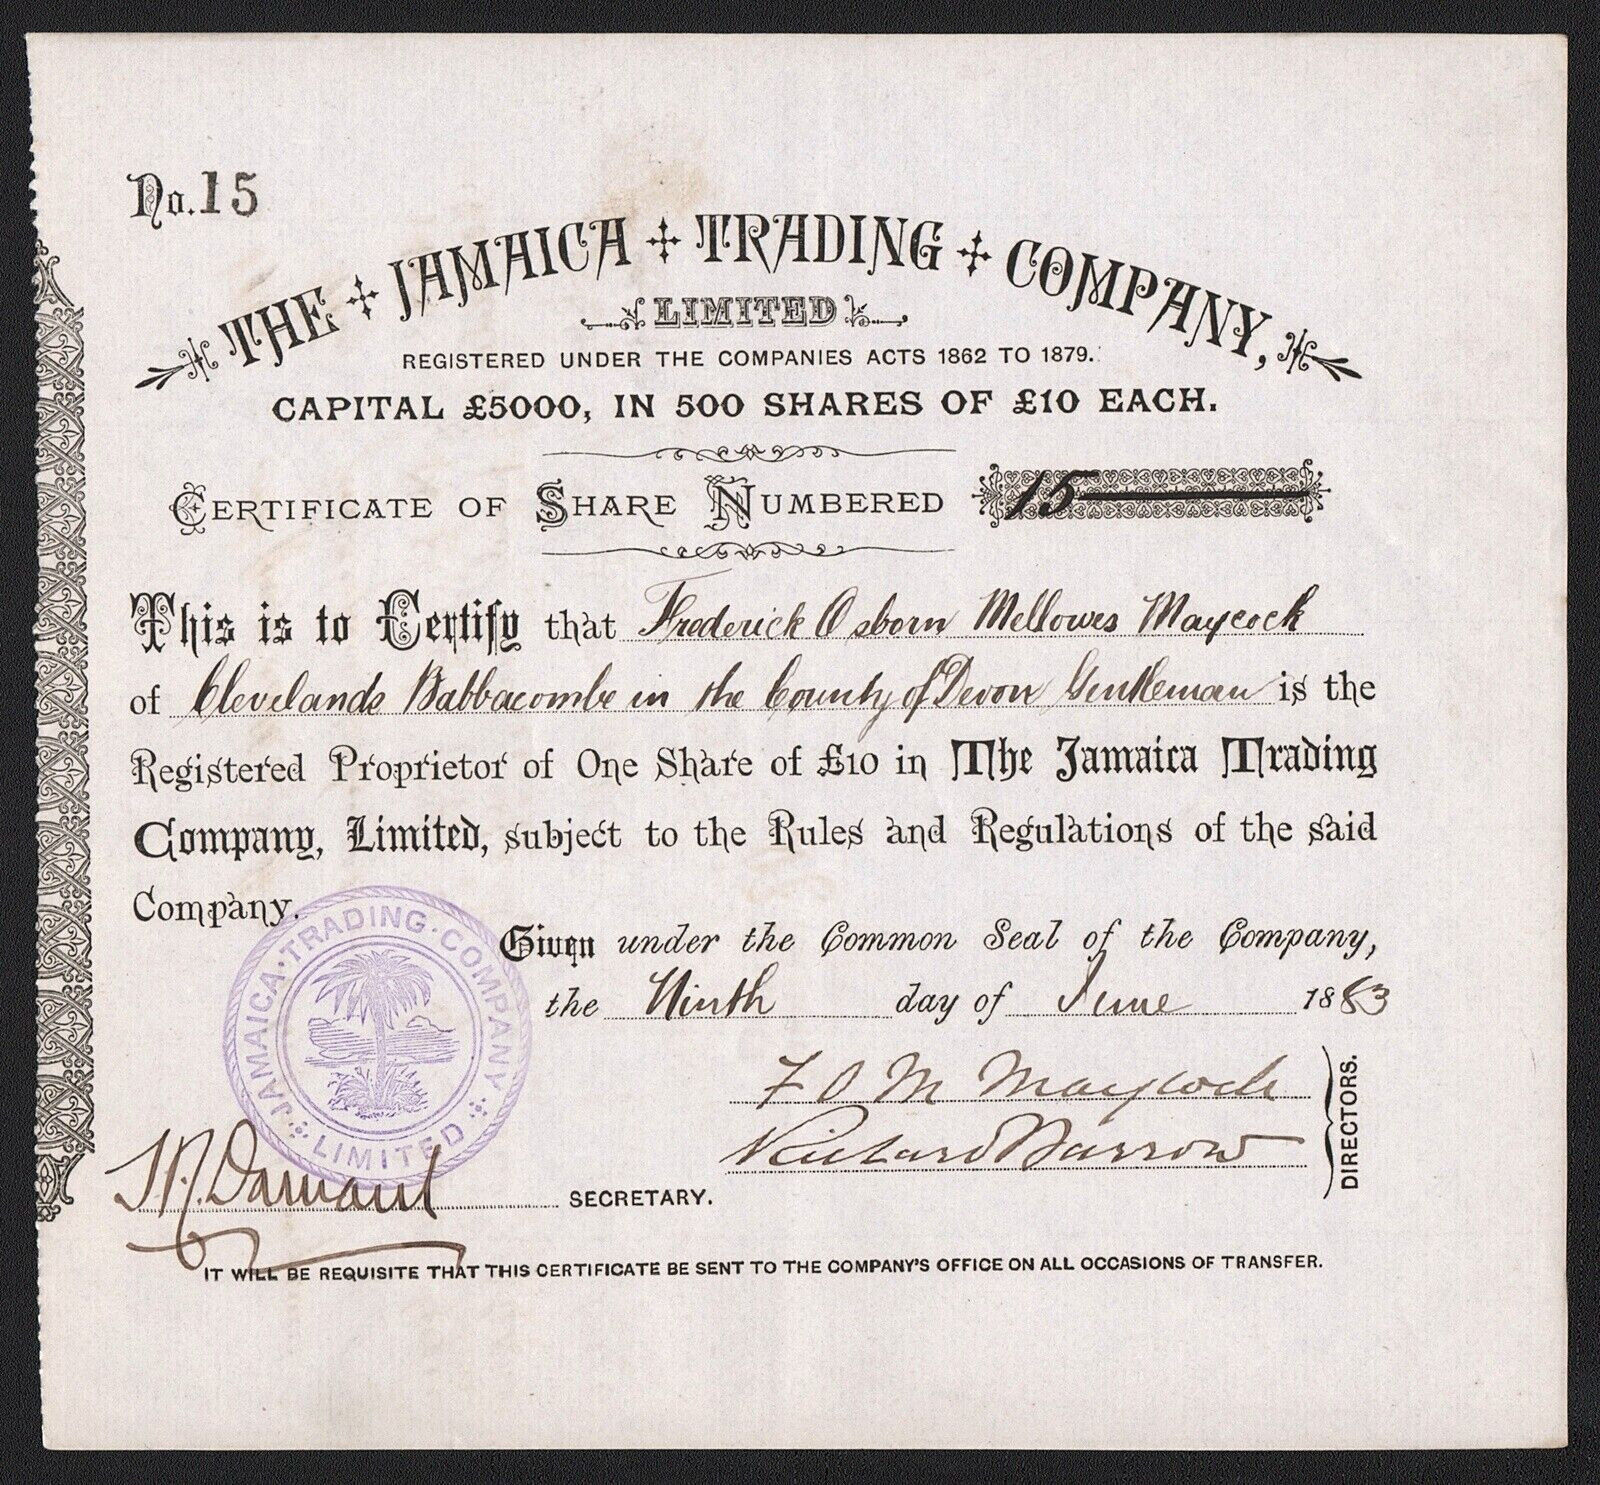 No. 15
THE JAMAICA TRADING COMPANY,
LIMITED
REGISTERED UNDER THE COMPANIES ACTS 1862 TO 1879.
CAPITAL £5000, IN 500 SHARES OF £10 EACH.
CERTIFICATE OF SHARE NUMBERED 15
This is to Certify that Frederick Osborn Mellowes Maycock
of Clevelands Babbacombe in the County of Devon Gentleman is the
Registered Proprietor of One Share of £10 in The Jamaica Trading
Company, Limited, subject to the Rules and Regulations of the said
Company.
JAMAICA · TRADING · COMPANY
LIMITED
Given under the Common Seal of the Company,
the Ninth day of June 1883
F O M Maycock
Richard Barrow
DIRECTORS.
Damant SECRETARY.
IT WILL BE REQUISITE THAT THIS CERTIFICATE BE SENT TO THE COMPANY'S OFFICE ON ALL OCCASIONS OF TRANSFER.